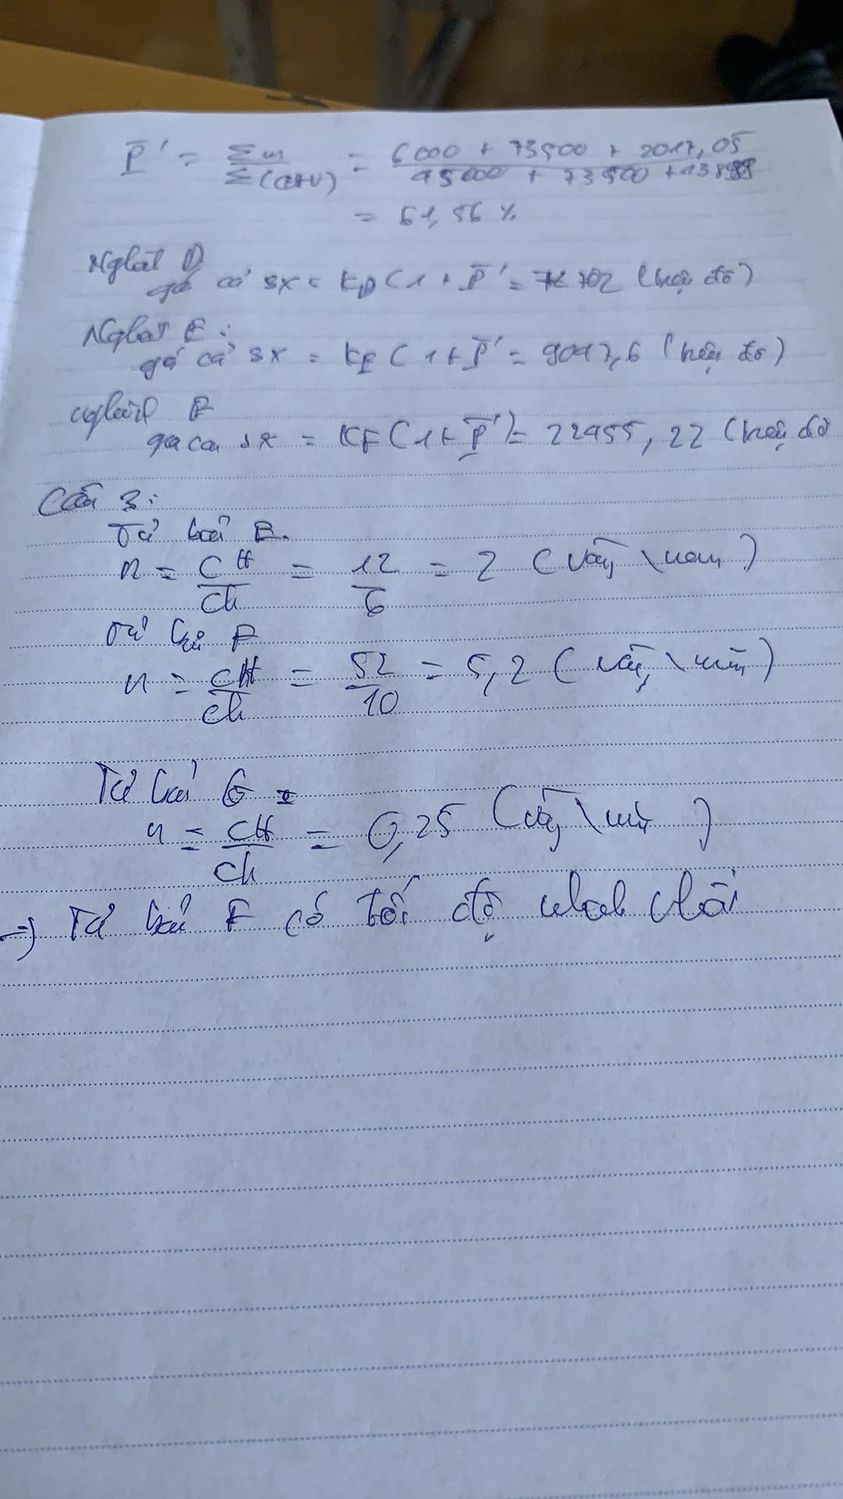 P̅' = Σm / Σ(C+V) = 6000 + 73500 + 2017,05 / 45000 + 73500 + 13898
= 61,56 %
Nghàh D
giá cả sx = KD (1 + P̅' = 702 (triệu đô)
Ngành E:
giá cả sx = KE (1+P̅' = 9047,6 (triệu đô)
nghành F
gia ca sx = KF (1+P̅') = 22455,22 (triệu đô
Câu 3:
Tư bản E.
n = CH / ch = 12 / 6 = 2 (vòng \ năm)
Tư bản F
n = CH / ch = 52 / 10 = 5,2 (vòng \ năm)
Tư bản G
n = CH / ch = 0,25 (vòng \ năm)
=> Tư bản F có tốc độ nhanh nhất